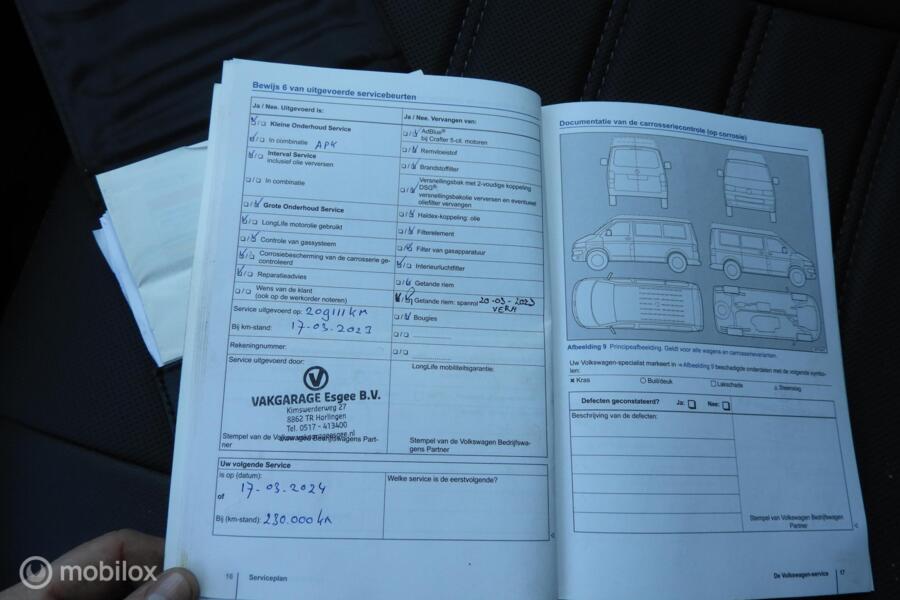 Bewijs 6 van uitgevoerde servicebeurten
Ja / Nee. Uitgevoerd is:
Kleine Onderhoud Service
In combinatie APK
Interval Service
inclusief olie verversen
In combinatie
Grote Onderhoud Service
LongLife motorolie gebruikt
Controle van gassysteem
Corrosiebescherming van de carrosserie ge-
controleerd
Reparatieadvies
Wens van de klant
(ook op de werkorder noteren)
Service uitgevoerd op: 209111 km
Bij km-stand: 17-03-2023
Rekeningnummer:
Service uitgevoerd door:
VAKGARAGE Esgee B.V.
Kimswerderweg 27
8862 TR Harlingen
Tel. 0517 - 413400
Stempel van de Volkswagen Bedrijfswagens Part-
ner
Ja / Nee. Vervangen van:
AdBlue®
bij Crafter 5-cil. motoren
Remvloeistof
Brandstoffilter
Versnellingsbak met 2-voudige koppeling
DSG®:
versnellingsbakolie verversen en eventueel
oliefilter vervangen
Haldex-koppeling: olie
Filterelement
Filter van gasapparatuur
Interieurluchtfilter
Getande riem
Getande riem: spanrol 20-03-2023
VERH
Bougies
LongLife mobiliteitsgarantie:
Stempel van de Volkswagen Bedrijfswa-
gens Partner
Uw volgende Service
is op (datum):
17-03-2024
of
Bij (km-stand): 230.000 km
Welke service is de eerstvolgende?
16 Serviceplan
Documentatie van de carrosseriecontrole (op corrosie)
Afbeelding 9 Principeafbeelding. Geldt voor alle wagens en carrosserievarianten.
Uw Volkswagen-specialist markeert in Afbeelding 9 beschadigde onderdelen met de volgende symbo-
len:
Kras Buil/deuk Lakschade Steenslag
Defecten geconstateerd? Ja: Nee:
Beschrijving van de defecten:
Stempel van Volkswagen Bedrijfswagen
Partner
De Volkswagen-service 17
mobilox